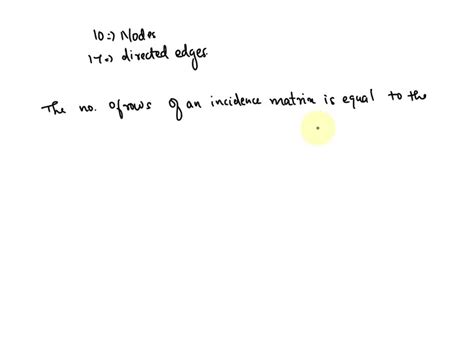 10 => Nodes
17 => directed edges
The no. of rows of an incidence matrix is equal to the